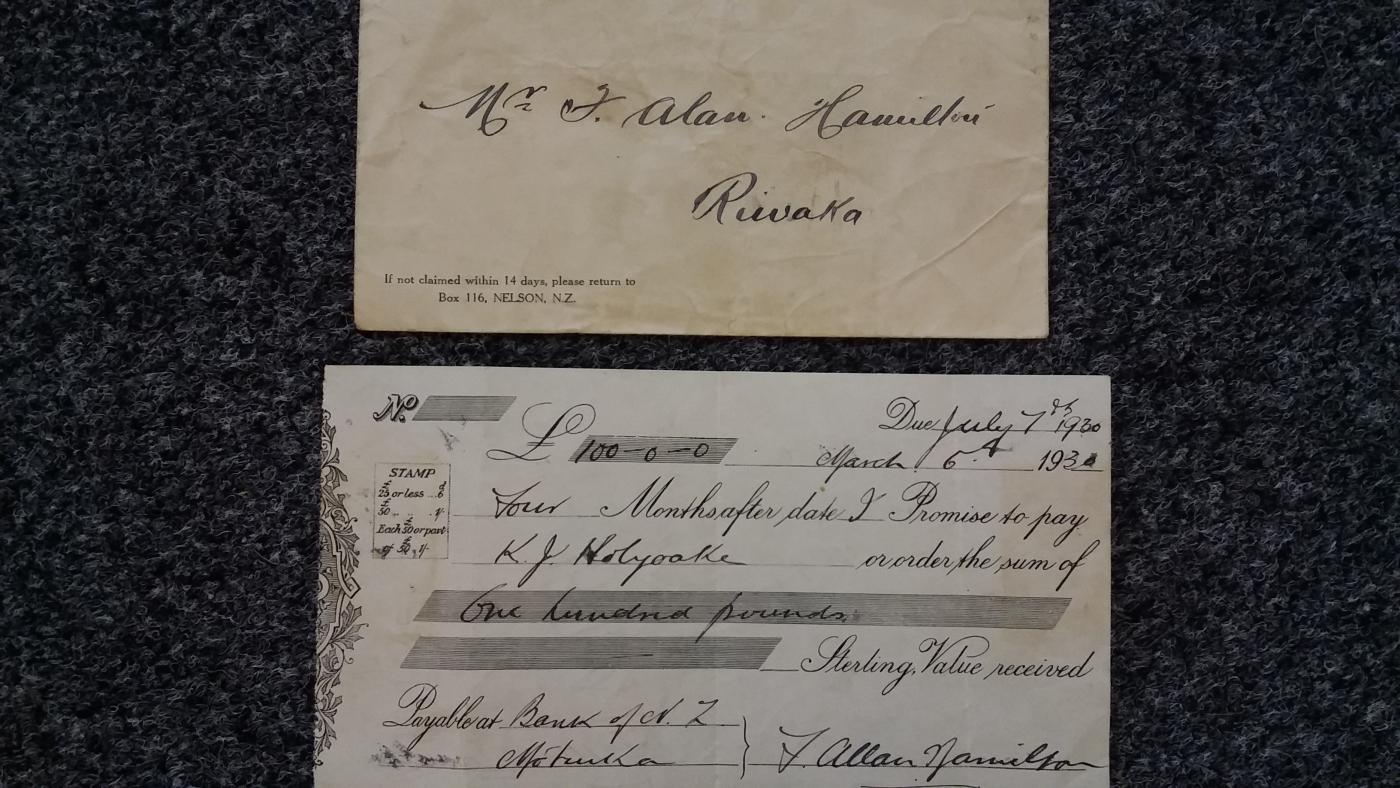 Mr F. Alan. Hamilton
Riwaka
If not claimed within 14 days, please return to
Box 116, NELSON, N.Z.
No.
Due July 7th 1930
£ 100-0-0 March 6th 1930
STAMP
£25 or less .. 6d
£50 .. .. 1/-
Each £50 or part
of £50, 1/-
Four Months after date I Promise to pay
K. J. Holyoake or order the sum of
One hundred pounds.
Sterling, Value received
Payable at Bank of N. Z
Motueka
F. Allan Hamilton